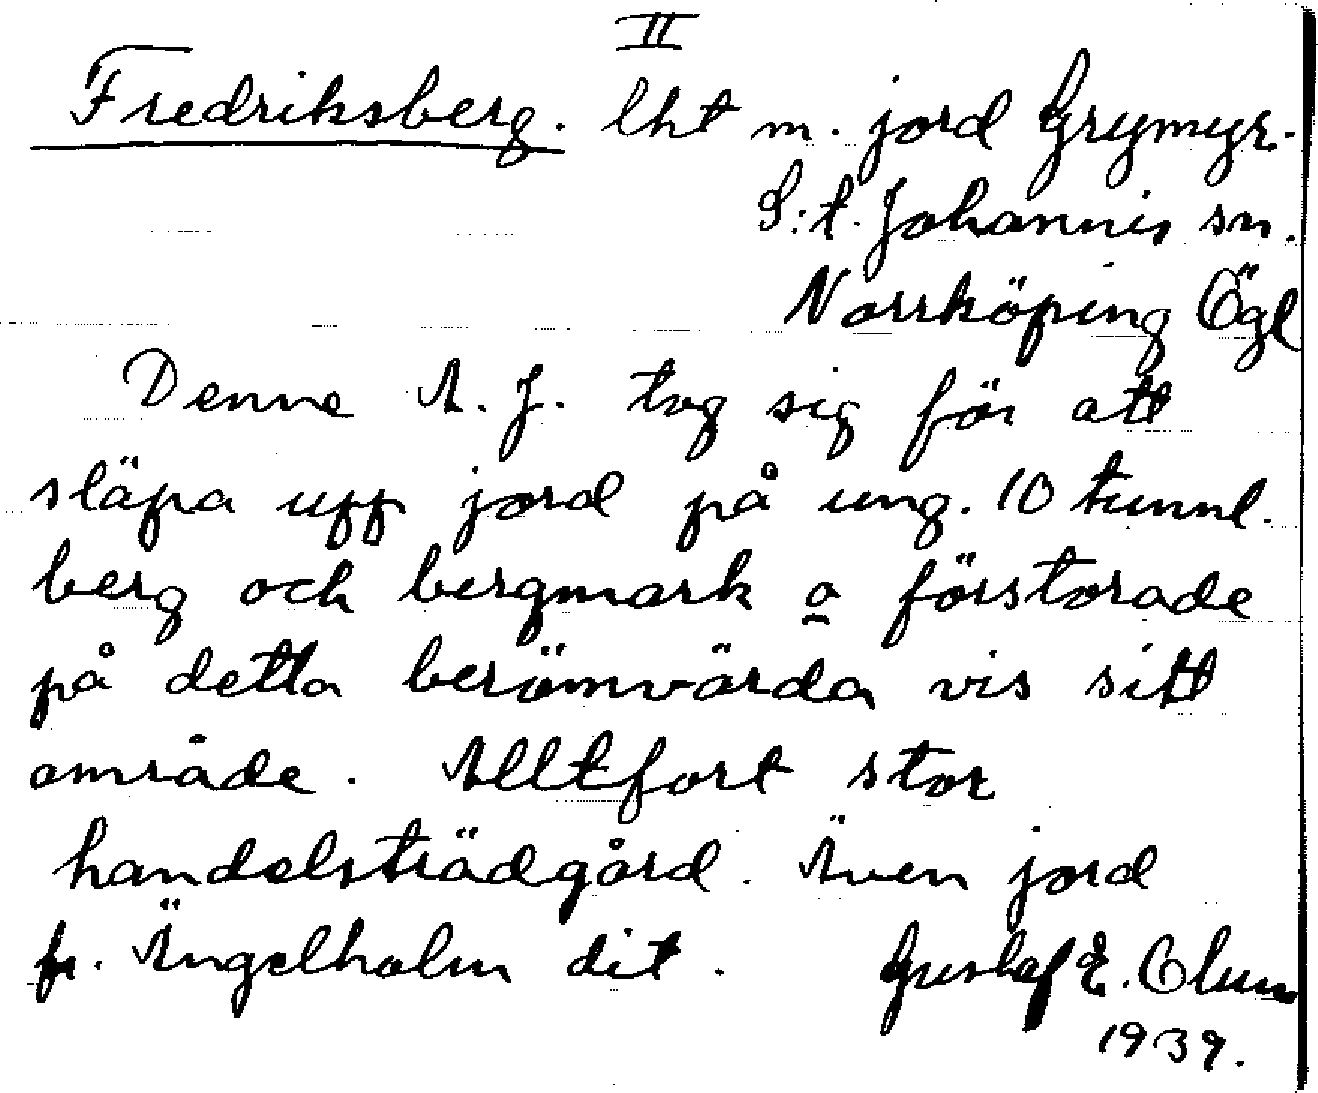 II
Fredriksberg. lht m. jord Grymyr.
S:t. Johannis sn.
Norrköping Ögl
Denne A. J. tog sig för att
släpa upp jord på ung. 10 tunnl.
berg och bergmark o förstorade
på detta berömvärda vis sitt
område. Alltfort stor
handelsträdgård. Även jord
fr. Ängelholm dit. Gustaf E. Olum
1939.